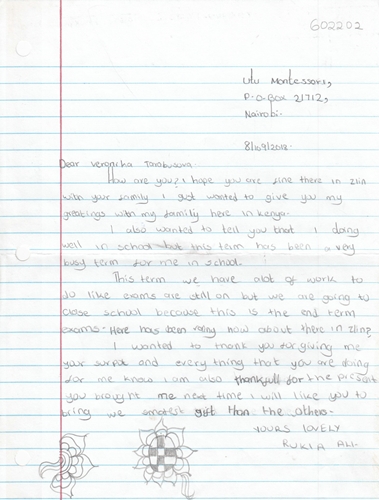 602202
Utu Montessori,
P.O.Box 21712,
Nairobi.
8/09/2018.
Dear Veronicha Tarabusova.
How are you? I hope you are fine there in zlin
with your family I just wanted to give you my
greetings with my family here in Kenya.
I also wanted to tell you that I doing
well in school but this term has been a very
busy term for me in school.
This term we have alot of work to
do like exams are still on but we are going to
close school because this is the end term
exams. Here has been rainy how about there in zlin?
I wanted to thank you for giving me
your surpot and every thing that you are doing
for me know I am also thankfull for the present
you brought me next time I will like you to
bring we gift than the others.
YOURS LOVELY
RUKIA ALI.